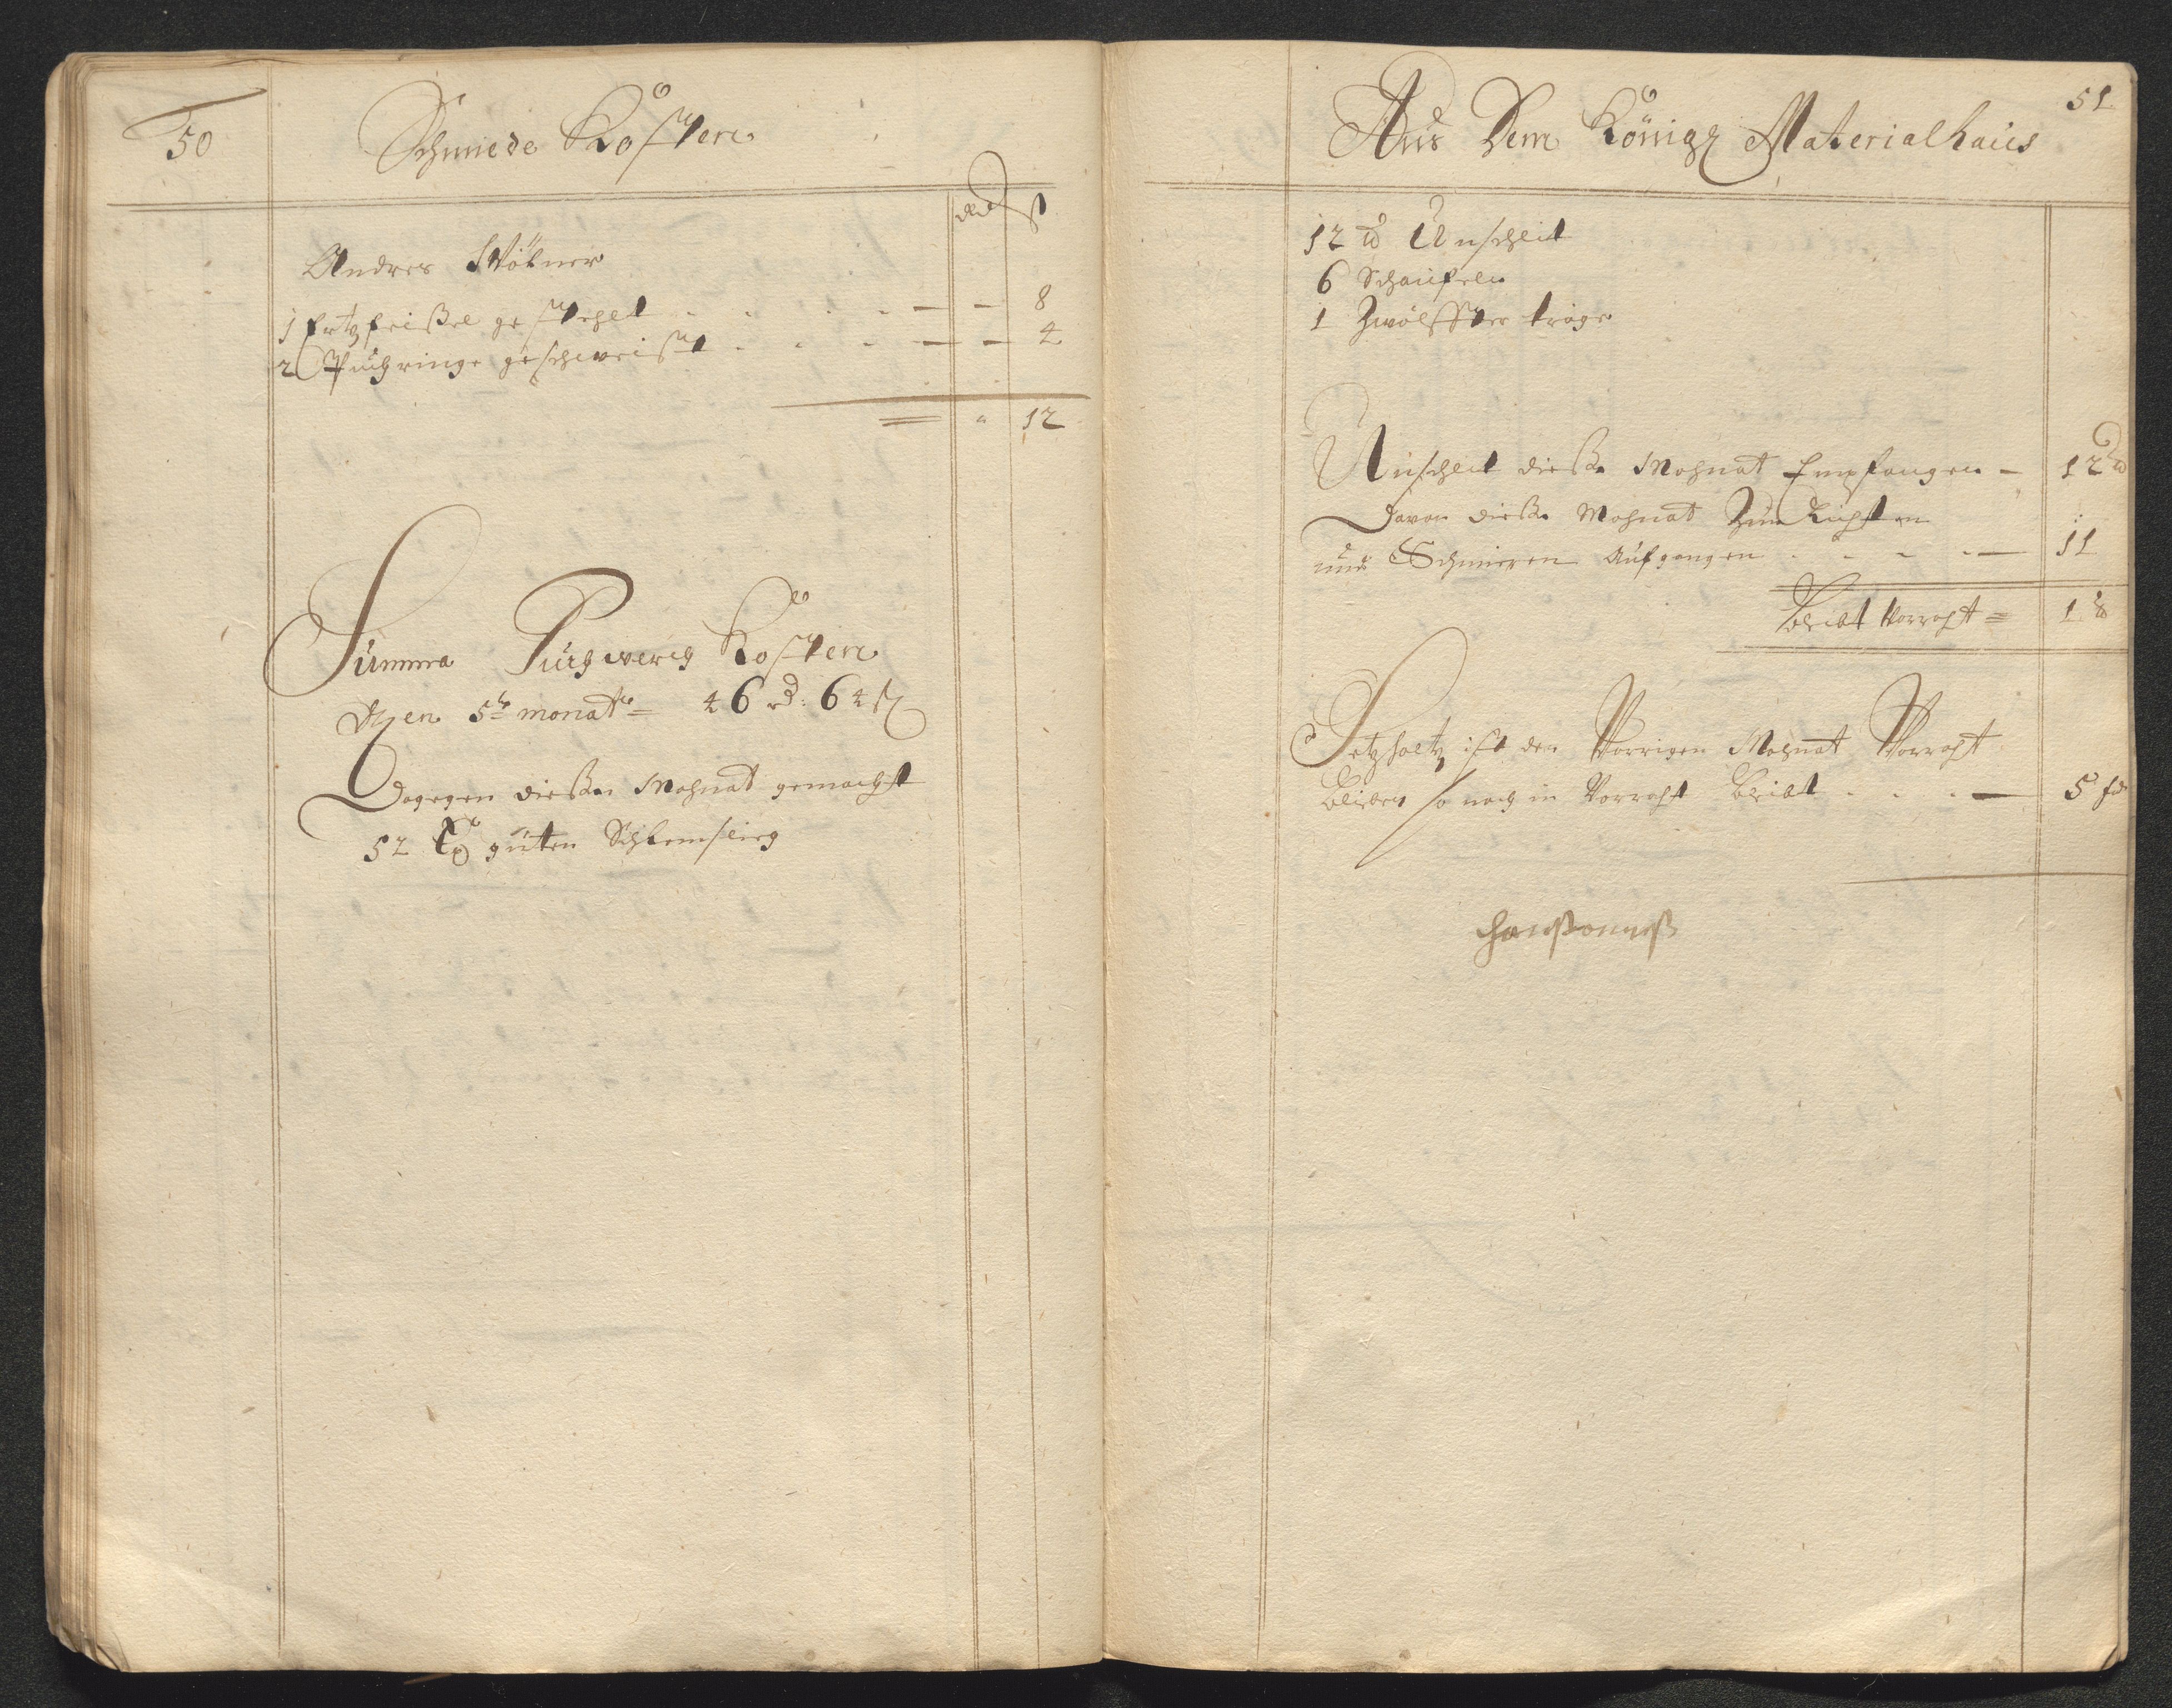 50
Schmiede Kosten
Rd ß
Andres Wöbner
1 Ertzfeißel gestehelt - - 8
2 Puchringe geschweist - - 4
= " 12
Summa Puchwerch Kosten
5te monat = 46 rd: 64 ß
Dagegen dießen Mohnat gemacht
52 guten Schlemslieg
51
Aus Dem Königl Materialhaus
12 ℔ Unschleit
6 Schaufeln
1 Zwölffter tröge
Unschleit dießen Mohnat Empfangen - 12 ℔
Davon dießen Mohnat Zum Lichten
und Schmieren Aufgangen - 11
Bleibt Vorraht = 1 ℔
Setzholtz ist den Vorrigen Mohnat Vorraht
blieben so noch in Vorraht bleibt - 5 fd